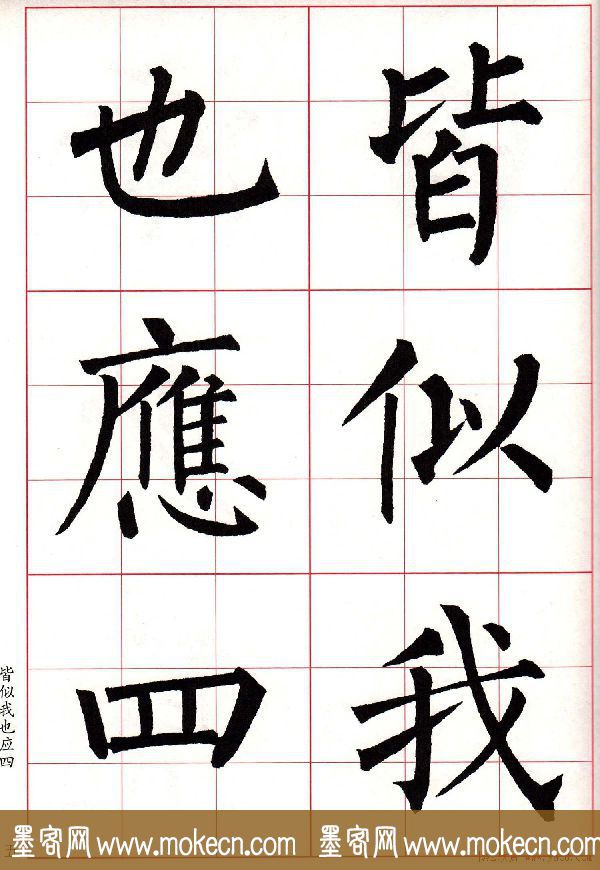 皆似我
也應四
皆似我也应四
墨客网 www.mokecn.com 墨客网 www.mokecn.com
五